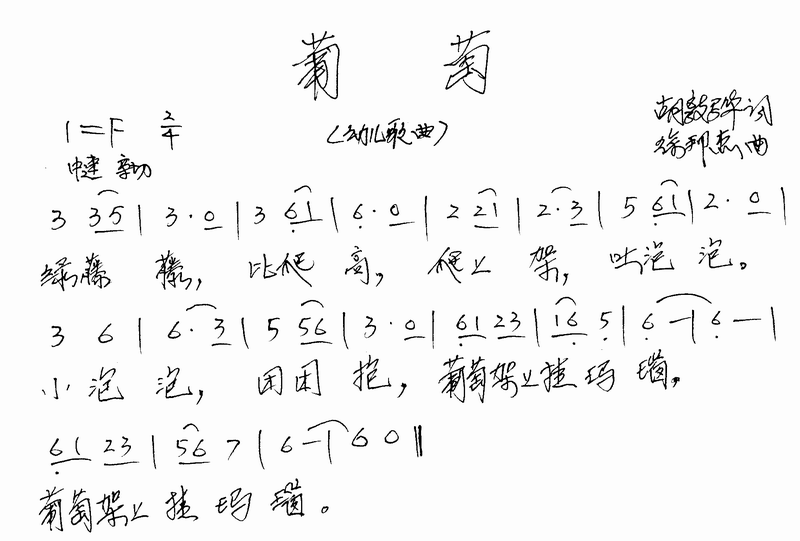 葡萄
1=F 2/4 (幼儿歌曲) 胡敦华词
中速 亲切 徐邦杰曲
3 35 | 3· 0 | 3 61 | 6· 0 | 2 21 | 2·3 | 5 61 | 2· 0 |
绿藤藤,比爬高,爬上架,吐泡泡。
3 6 | 6·3 | 5 56 | 3·0 | 61 23 | 16 5 | 6 - | 6 - |
小泡泡,团团抱,葡萄架上挂玛瑙,
61 23 | 56 7 | 6 - | 6 0 ‖
葡萄架上挂玛瑙。